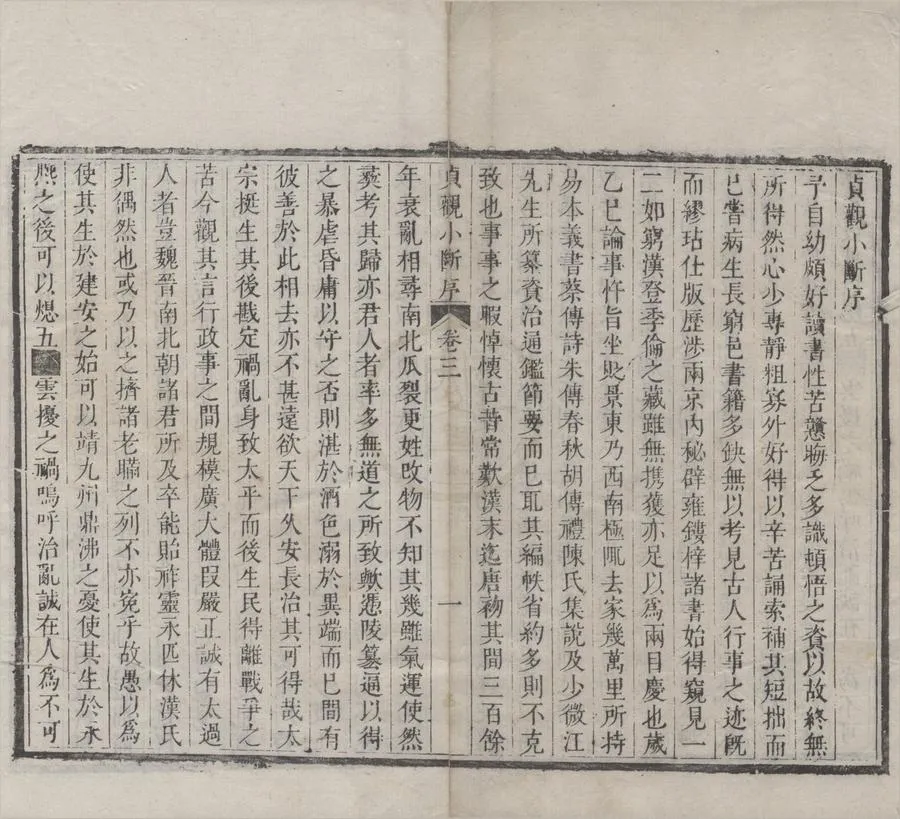 貞觀小斷序
予自幼頗好讀書性苦戇晦乏多識頓悟之資以故終無
所得然心少專靜粗寡外好得以辛苦誦索補其短拙而
已嘗病生長窮邑書籍多缺無以考見古人行事之迹旣
而繆玷仕版歷涉兩京内秘辟雍鏤梓諸書始得窺見一
二如窮漢登季倫之藏雖無携獲亦足以爲兩目慶也歲
乙巳論事忤旨坐貶景東乃西南極陬去家幾萬里所持
易本義書蔡傳詩朱傳春秋胡傳禮陳氏集說及少微江
先生所纂資治通鑑節要而已耴其編帙省約多則不克
致也事事之暇悼懷古昔常歎漢末迄唐初其間三百餘
貞觀小斷序
卷三
一
年衰亂相尋南北瓜裂更姓改物不知其幾雖氣運使然
爰考其歸亦君人者率多無道之所致歟憑陵簒逼以得
之暴虐昏庸以守之否則湛於酒色溺於異端而已間有
彼善於此相去亦不甚遠欲天下久安長治其可得哉太
宗挺生其後戡定禍亂身致太平而後生民得離戰爭之
苦今觀其言行政事之間規模廣大體段嚴正誠有太過
人者豈魏晉南北朝諸君所及卒能貽祚靈永匹休漢氏
非偶然也或乃以之擠諸老瞞之列不亦寃乎故愚以爲
使其生於建安之始可以靖九州鼎沸之憂使其生於永
熈之後可以熄五雲擾之禍嗚呼治亂誠在人爲不可